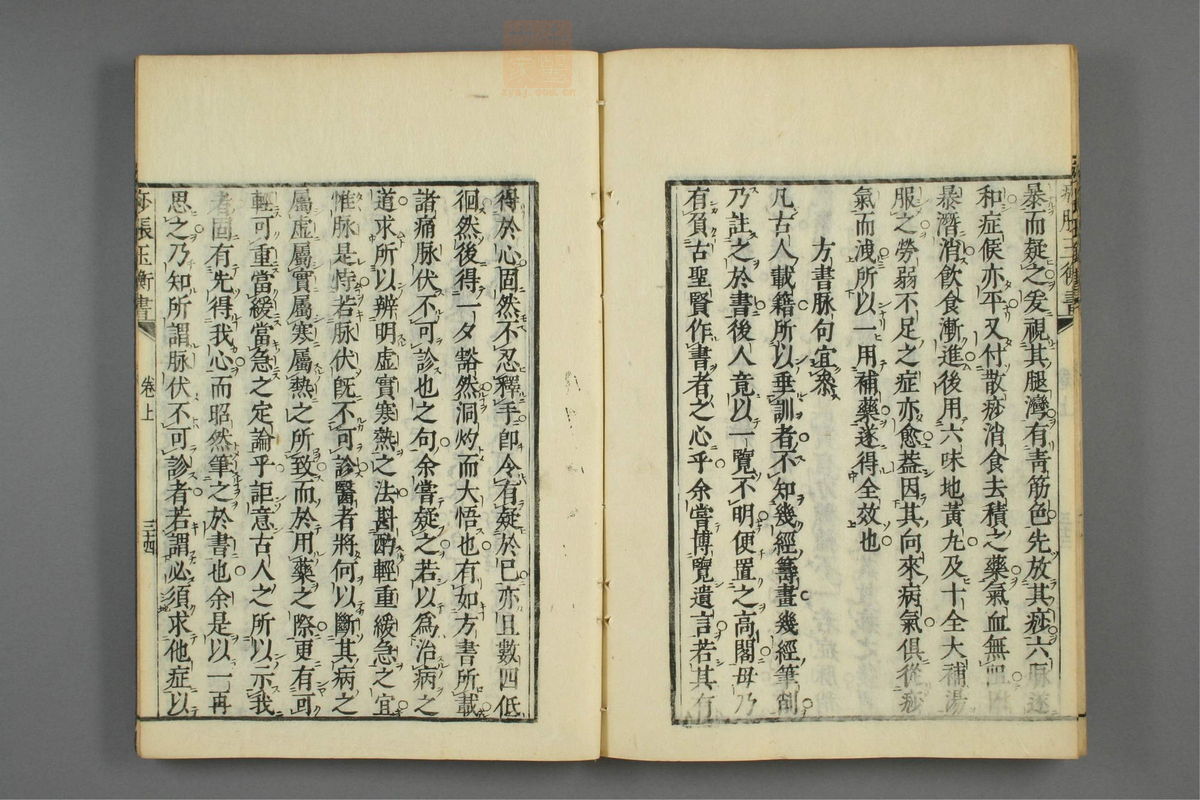 暴而疑之爰視其腿灣有青筋色先放其痧六脉遂
和症候亦平又付散痧消食去積之藥氣血無阻因
暴潛消飲食漸進後用六味地黃丸及十全大補湯
服之勞弱不足之症亦愈葢因其向來病氣俱從痧
氣而洩所以一用補藥遂得全效也
方書脉句宜參
凡古人載籍所以垂訓者不知幾經籌畫幾經筆削
乃註之於書後人竟以一覽不明便置之高閣毋乃
有負古聖賢作書者之心乎余嘗博覽遺言若其有
得於心固然不忍釋手卽令有疑於已亦且數四低
徊然後得一夕豁然洞灼而大悟也有如方書所載
諸痛脉伏不可診也之句余嘗疑之若以爲治病之
道求所以辨明虚實寒熱之法斟酌輕重緩急之宜
惟脉是恃若脉伏旣不可診醫者將何以斷其病之
屬虚屬實屬寒屬熱之所致而於用藥之際更有可
輕可重當緩當急之定論乎詎意古人之所以示我
者固有先得我心而昭然筆之於書也余是以一再
思之乃知所謂脉伏不可診者若謂必須求他症以
痧脹玉衡書
卷上
三十四